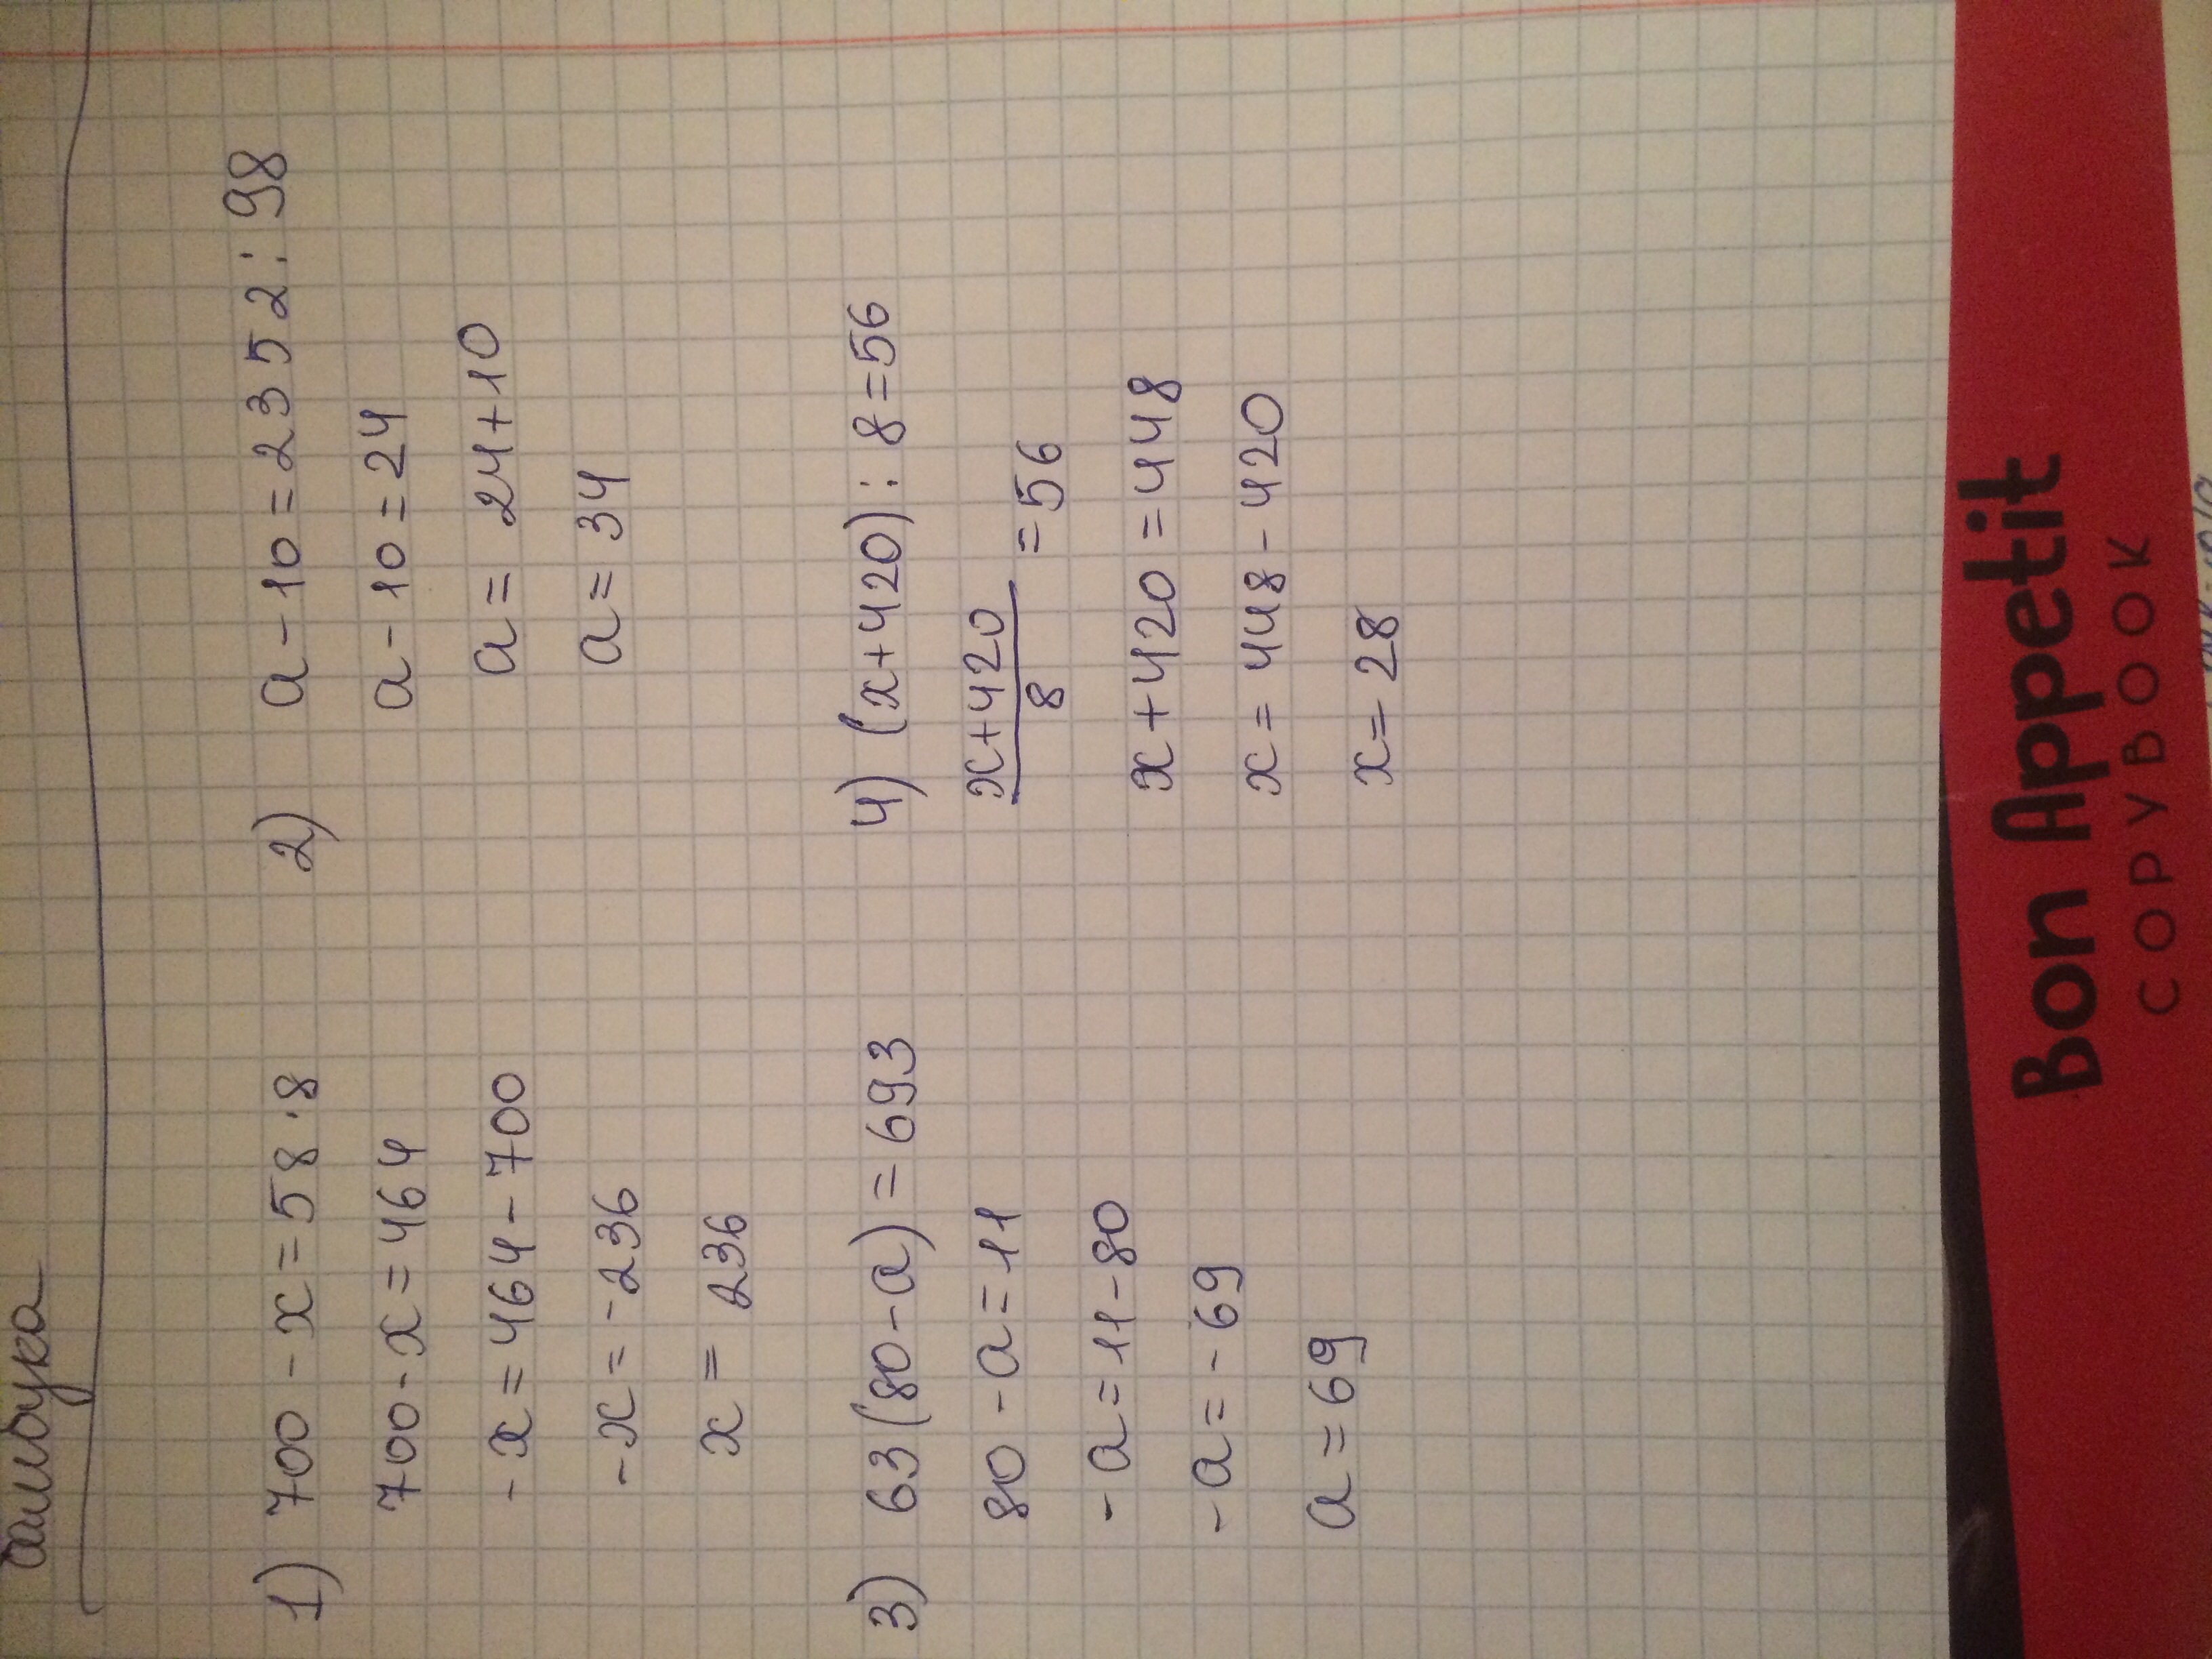 1) 700 - x = 58 · 8
700 - x = 464
- x = 464 - 700
- x = - 236
x = 236
2) a - 10 = 2352 : 98
a - 10 = 24
a = 24 + 10
a = 34
3) 63 (80 - a) = 693
80 - a = 11
- a = 11 - 80
- a = - 69
a = 69
4) (x + 420) : 8 = 56
x + 420
8 = 56
x + 420 = 448
x = 448 - 420
x = 28
Bon Appetit
COPYBOOK